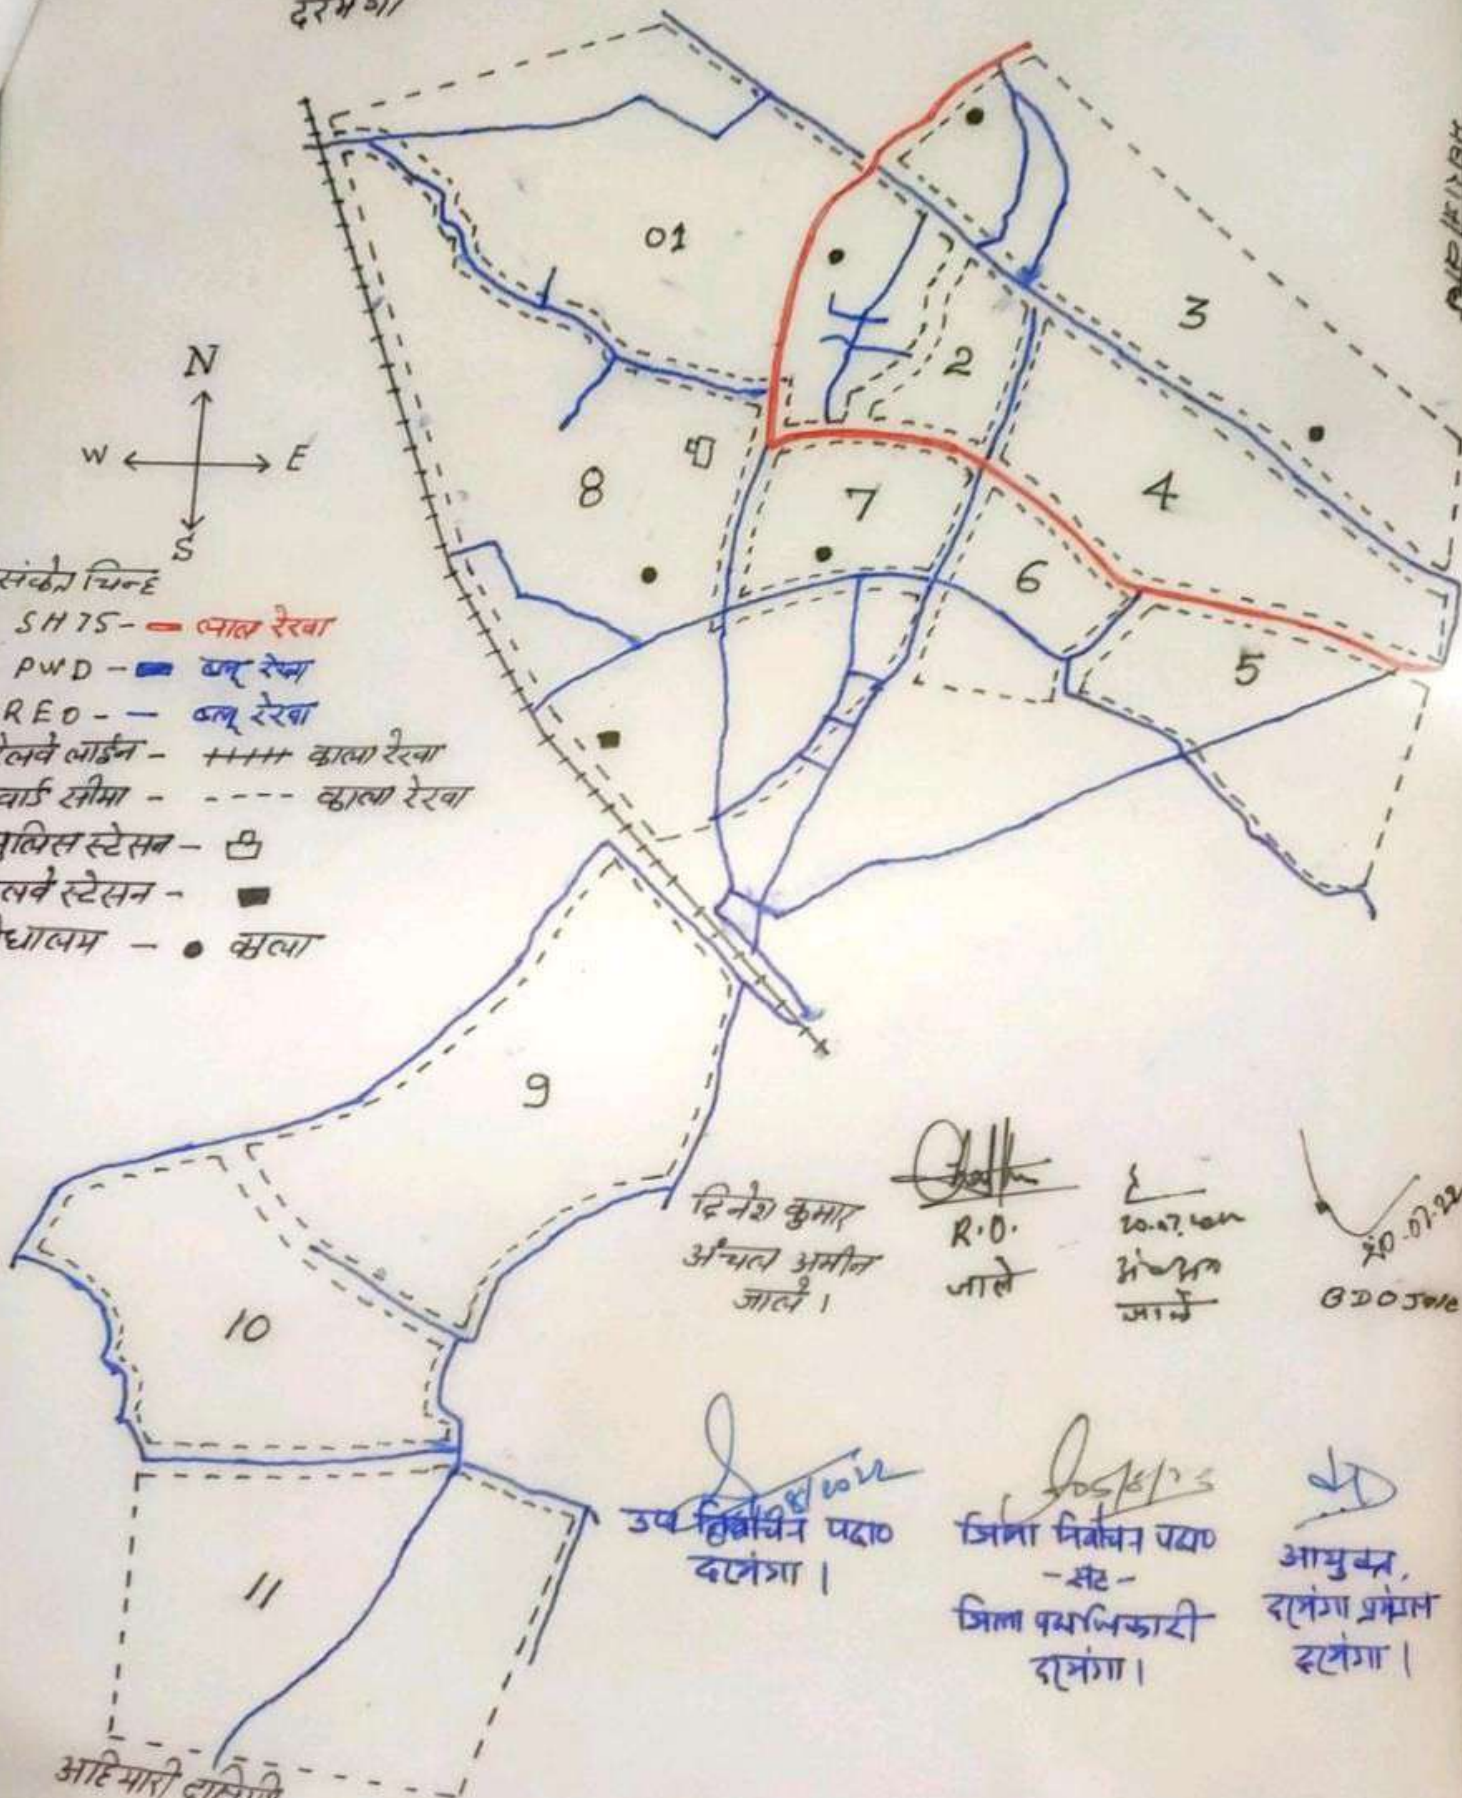 दरभंगा
01
3
2
N
W E
S
8
7
4
6
5
संकेत चिन्ह
SH 75 - लाल रेखा
PWD - ब्लू रेखा
REO - - ब्लू रेखा
लवे लाईन - काला रेखा
वार्ड सीमा - ---- काला रेखा
पुलिस स्टेसन -
लवे स्टेसन -
धालय - काला
9
10
11
दिनेश कुमार
अंचल अमीन
जाले।
R.O.
जाले
20.07.2022
जाले
20-07-22
BDO Jale
8/2022
उप निर्वाचन पदा०
दरभंगा।
जिला निर्वाचन पदा०
-सह-
जिला पदाधिकारी
दरभंगा।
आयुक्त,
दरभंगा प्रमंडल
दरभंगा।
अहिमारी